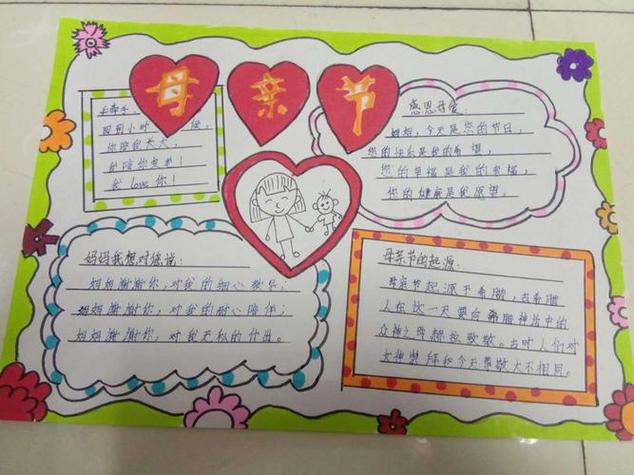 母亲节
手牵手
你陪我长大,
我陪你变老!
我love你!
感恩母爱:
妈妈,今天是您的节日,
您的快乐是我的希望,
您的幸福是我的幸福,
您的健康是我愿望。
妈妈我想对您说:
妈妈谢谢你,对我的细心教导;
妈妈谢谢你,对我的耐心陪伴;
妈妈谢谢你,对我无私的付出。
母亲节的起源:
母亲节起源于希腊,古希腊
人在这一天要向希腊神话中的
众神之母赫拉致敬。古时人们对
女神祭拜和今天尊敬大不相同。